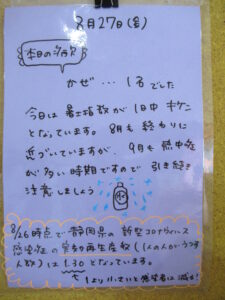 8月27日(金)
本日の病欠
かぜ…1名でした
今日は 暑さ指数が 1日中 キケン
となっています。8月も 終わりに
近づいていますが、9月も 熱中症
が 多い時期ですので 引き続き
注意しましょう
8/26時点で静岡県の 新型コロナウィルス
感染症の 実効再生産数(1人の人がうつす
人数)は 1.30 となっています。
1より小さいと感染者は 減少!